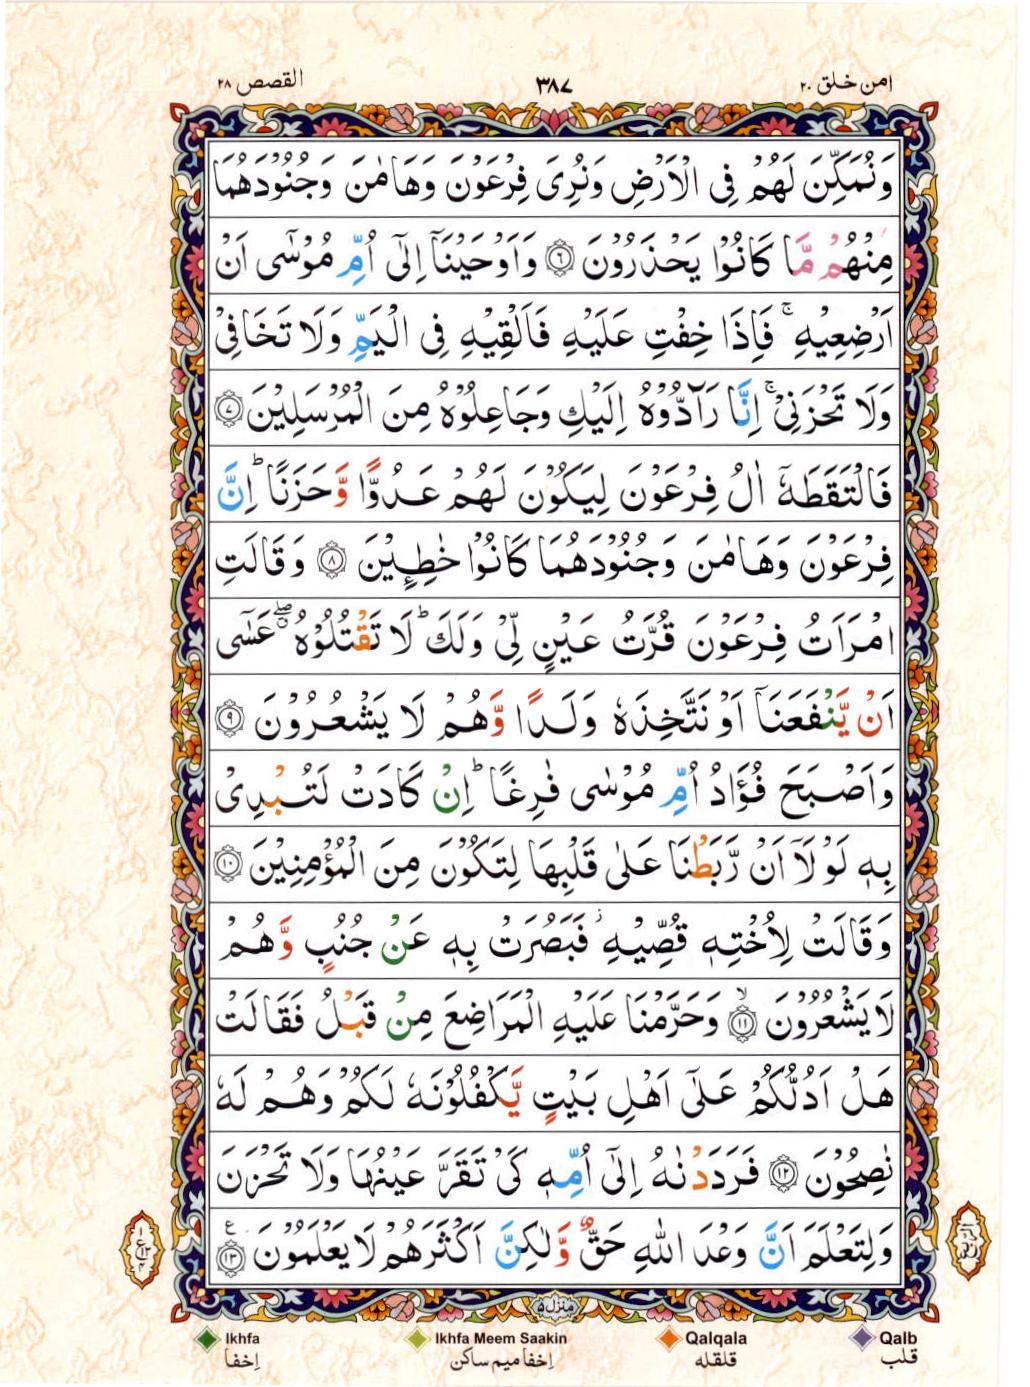 القصص ٢٨ ٣٨٧ امن خلق ٢٠
وَنُمَكِّنَ لَهُمْ فِى الْاَرْضِ وَنُرِىَ فِرْعَوْنَ وَهَامٰنَ وَجُنُوْدَهُمَا
مِنْهُمْ مَّا كَانُوْا يَحْذَرُوْنَ ۝٦ وَاَوْحَيْنَاۤ اِلٰۤى اُمِّ مُوْسٰۤى اَنْ
اَرْضِعِيْهِ ۚ فَاِذَا خِفْتِ عَلَيْهِ فَاَلْقِيْهِ فِى الْيَمِّ وَلَا تَخَافِىْ
وَلَا تَحْزَنِىْ ۚ اِنَّا رَآدُّوْهُ اِلَيْكِ وَجَاعِلُوْهُ مِنَ الْمُرْسَلِيْنَ ۝٧
فَالْتَقَطَهٗۤ اٰلُ فِرْعَوْنَ لِيَكُوْنَ لَهُمْ عَدُوًّا وَّحَزَنًا ؕ اِنَّ
فِرْعَوْنَ وَهَامٰنَ وَجُنُوْدَهُمَا كَانُوْا خٰطِـِٕيْنَ ۝٨ وَقَالَتِ
امْرَاَتُ فِرْعَوْنَ قُرَّتُ عَيْنٍ لِّىْ وَلَكَ ؕ لَا تَقْتُلُوْهُ ۖۗ عَسٰۤى
اَنْ يَّنْفَعَنَاۤ اَوْ نَتَّخِذَهٗ وَلَدًا وَّهُمْ لَا يَشْعُرُوْنَ ۝٩
وَاَصْبَحَ فُؤَادُ اُمِّ مُوْسٰى فٰرِغًا ؕ اِنْ كَادَتْ لَتُبْدِىْ
بِهٖ لَوْلَاۤ اَنْ رَّبَطْنَا عَلٰى قَلْبِهَا لِتَكُوْنَ مِنَ الْمُؤْمِنِيْنَ ۝١٠
وَقَالَتْ لِاُخْتِهٖ قُصِّيْهِ ؗ فَبَصُرَتْ بِهٖ عَنْ جُنُبٍ وَّهُمْ
لَا يَشْعُرُوْنَ ۝١١ۙ وَحَرَّمْنَا عَلَيْهِ الْمَرَاضِعَ مِنْ قَبْلُ فَقَالَتْ
هَلْ اَدُلُّكُمْ عَلٰۤى اَهْلِ بَيْتٍ يَّكْفُلُوْنَهٗ لَكُمْ وَهُمْ لَهٗ
نٰصِحُوْنَ ۝١٢ فَرَدَدْنٰهُ اِلٰۤى اُمِّهٖ كَىْ تَقَرَّ عَيْنُهَا وَلَا تَحْزَنَ
وَلِتَعْلَمَ اَنَّ وَعْدَ اللّٰهِ حَقٌّ وَّلٰكِنَّ اَكْثَرَهُمْ لَا يَعْلَمُوْنَ ۝١٣ ع
منزل ٥
Ikhfa Ikhfa Meem Saakin Qalqala Qalb
اِخفا اِخفا میم ساکن قلقله قلب